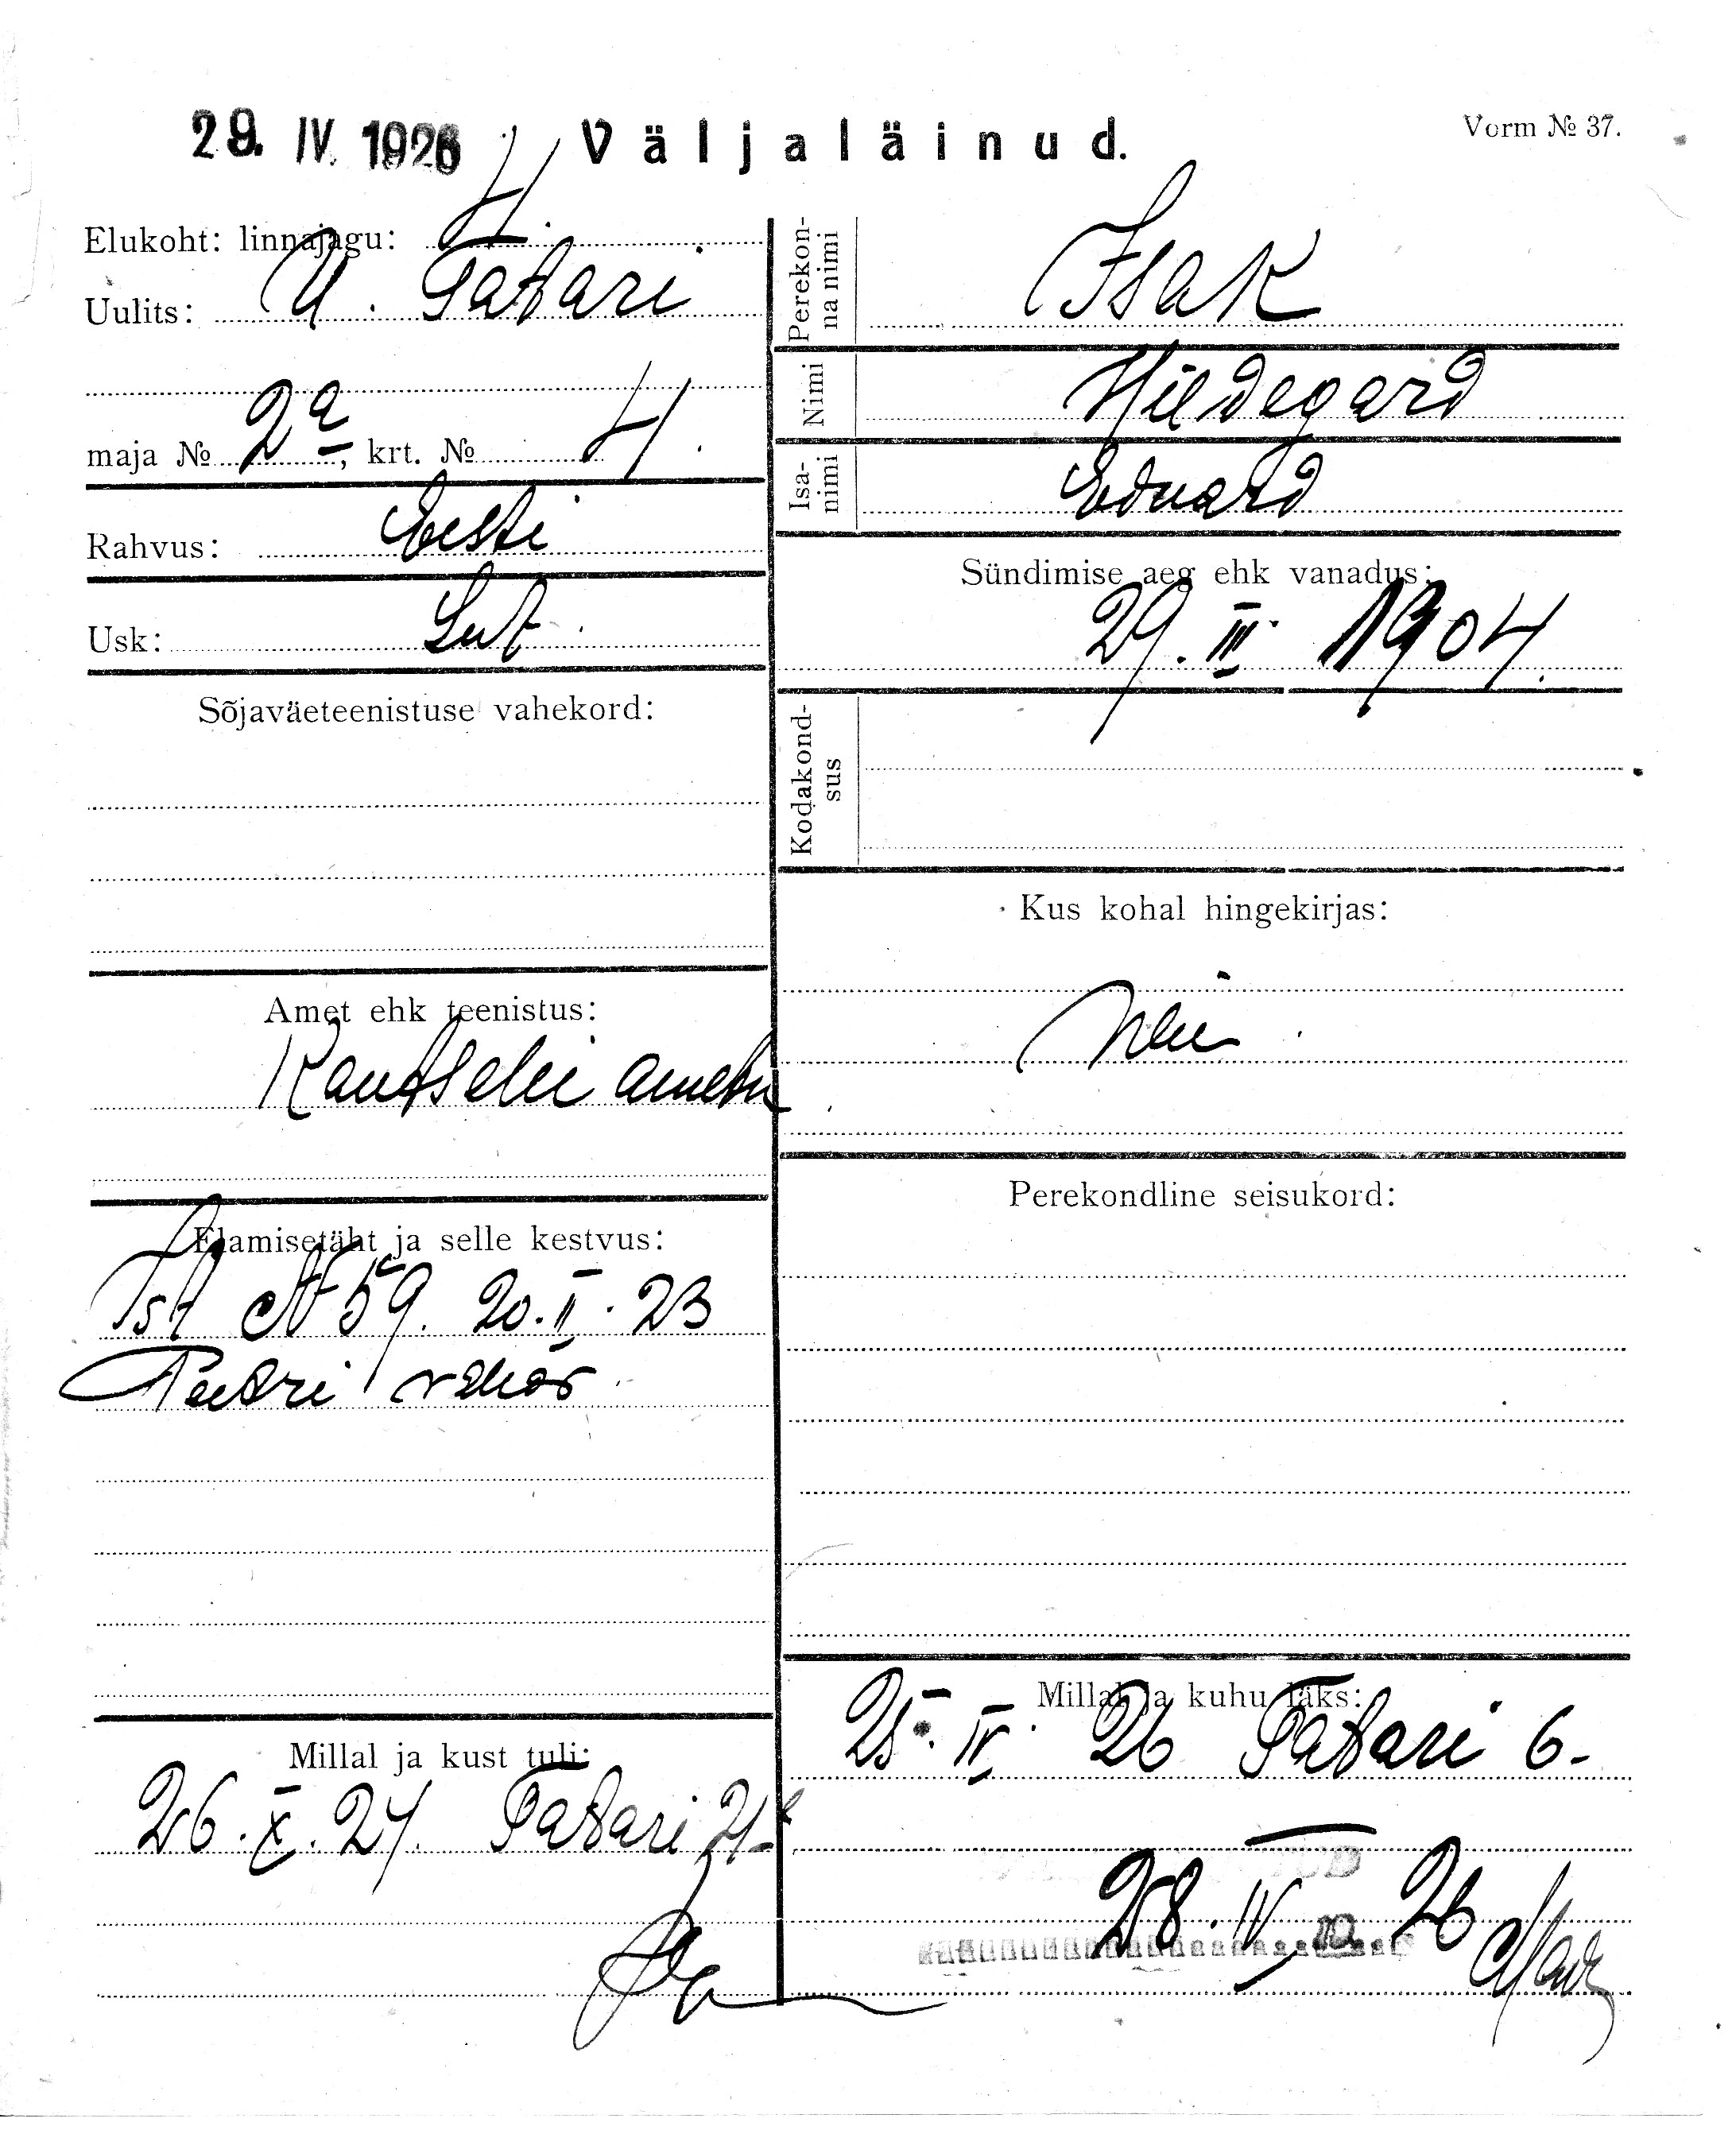 29. IV. 1926
Väljaläinud.
Vorm № 37.
Elukoht: linnajagu: 4.
Uulits: U. Tatari
maja № 2a, krt. № 4.
Rahvus: Eesti
Usk: Lut.
Sõjaväeteenistuse vahekord:
Amet ehk teenistus:
Kantselei ametn
Elamisetäht ja selle kestvus:
Tst № 59. 20.II.23
Peetri
Millal ja kust tuli:
26.X.24. Tatari
Perekonna nimi Isak
Nimi Hildegard
Isanimi Eduard
Sündimise aeg ehk vanadus:
29. III. 1904.
Kodakondsus
Kus kohal hingekirjas:
Perekondline seisukord:
Millal ja kuhu läks:
25. IV. 26 Tatari 6-
28. IV 26